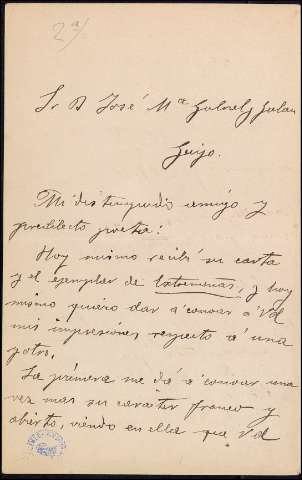 2ª/
Sr D José Mª Gabriel y Galan
Guijo.
Mi distinguido amigo y
predilecto poeta:
Hoy mismo recibí su carta
y el ejemplar de Extremeñas, y hoy
mismo quiero dar á conocer á Vd
mis impresiones respecto á una
y otro.
La primera me dá á conocer una
vez mas su caracter franco y
abierto, viendo en ella que Vd